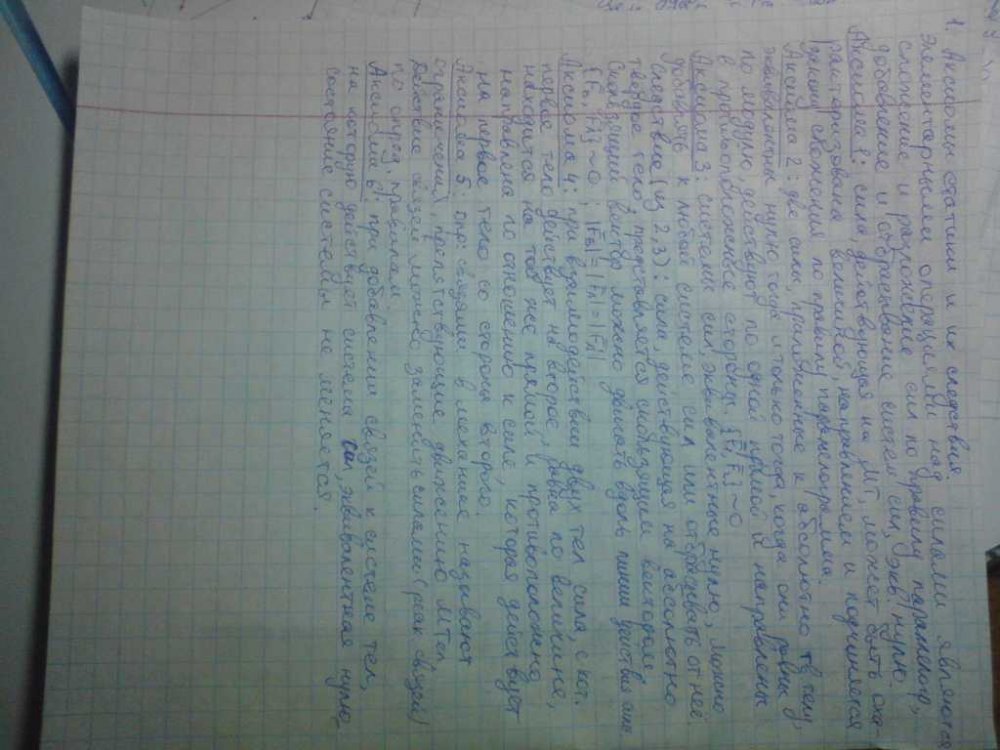 1. Аксиомы статики и их следствия.
Элементарными операциями над силами являются
сложение и разложение сил по правилу параллелогр.,
добавление и отбрасывание систем сил, экв. нулю.
Аксиома 1: сила, действующая на МТ, может быть оха-
рактеризована величиной, направлением и подчиняется
закону сложения по правилу параллелограмма.
Аксиома 2: две силы, приложенные к абсолютно тв. телу,
эквивалентны нулю тогда и только тогда, когда они равны
по модулю, действуют по одной прямой и направлены
в противоположные стороны. {F1, F2} ~ 0
Аксиома 3: систему сил, эквивалентную нулю, можно
добавлять к любой системе сил или отбрасывать от неё
Следствие (из 2,3): сила, действующая на абсолютно
твердое тело, представляется скользящим вектором
Скользящий вектор можно двигать вдоль линии действия силы
~ 0
Аксиома 4: при взаимодействии двух тел сила, с кот.
первое тело действует на второе, равна по величине,
находится на той же прямой и противоположно
направлена по отношению к силе, которая действует
на первое тело со стороны второго.
Аксиома 5: связями в механике называют
ограничения, препятствующие движению МТ,
Действие связей можно заменить силами (реак связей)
по опред. правилам
Аксиома 6: при добавлении связей к системе тел,
на которую действует система сил, эквивалентная нулю,
состояние системы не меняется.